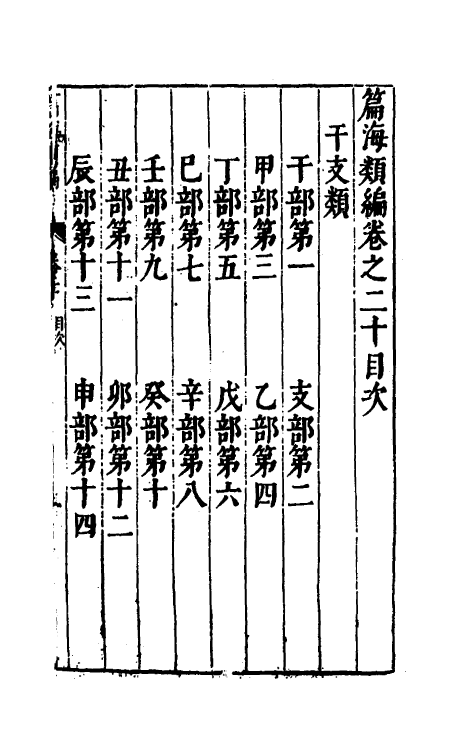 篇海類編卷之二十目次
干支類
干部第一 支部第二
甲部第三 乙部第四
丁部第五 戊部第六
巳部第七 辛部第八
壬部第九 癸部第十
丑部第十一 卯部第十二
辰部第十三 申部第十四
目次